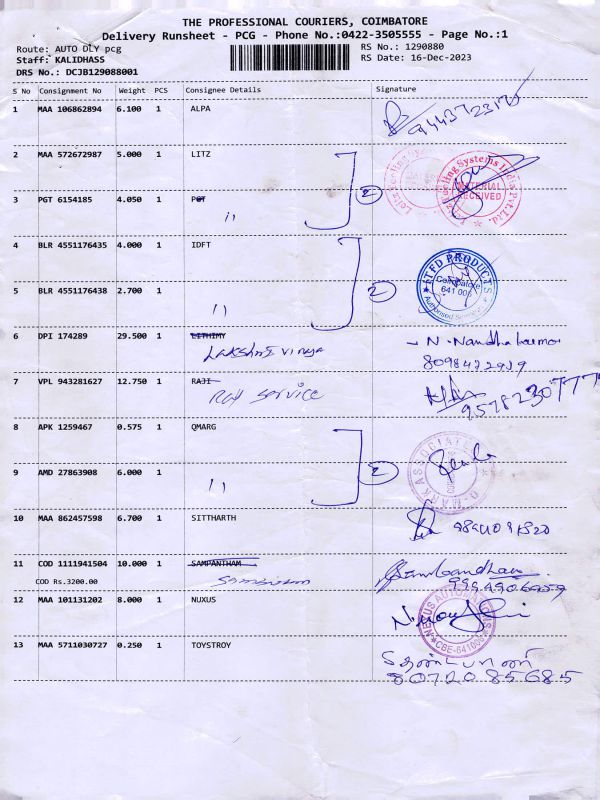 THE PROFESSIONAL COURIERS, COIMBATORE
Delivery Runsheet - PCG - Phone No.:0422-3505555 - Page No.:1
Route: AUTO DLY pcg RS No.: 1290880
Staff: KALIDHASS RS Date: 16-Dec-2023
DRS No.: DCJB129088001
S No Consignment No Weight PCS Consignee Details Signature
1 MAA 106862894 6.100 1 ALPA
2 MAA 572672987 5.000 1 LITZ
MATERIAL RECEIVED
2
3 PGT 6154185 4.050 1 PGT
11
4 BLR 4551176435 4.000 1 IDFT
ITFD PRODUCTS
Coimbatore
641 006
2
5 BLR 4551176438 2.700 1
11
6 DPI 174289 29.500 1 LITHIMY
8098422929
7 VPL 943281627 12.750 1 RAJI
service
8 APK 1259467 0.575 1 QMARG
2
9 AMD 27863908 6.000 1
11
10 MAA 862457598 6.700 1 SITTHARTH
11 COD 1111941504 10.000 1 SAMPANTHAM
COD Rs.3200.00
12 MAA 101131202 8.000 1 NUXUS
CBE-641006
13 MAA 5711030727 0.250 1 TOYSTROY
8072085685